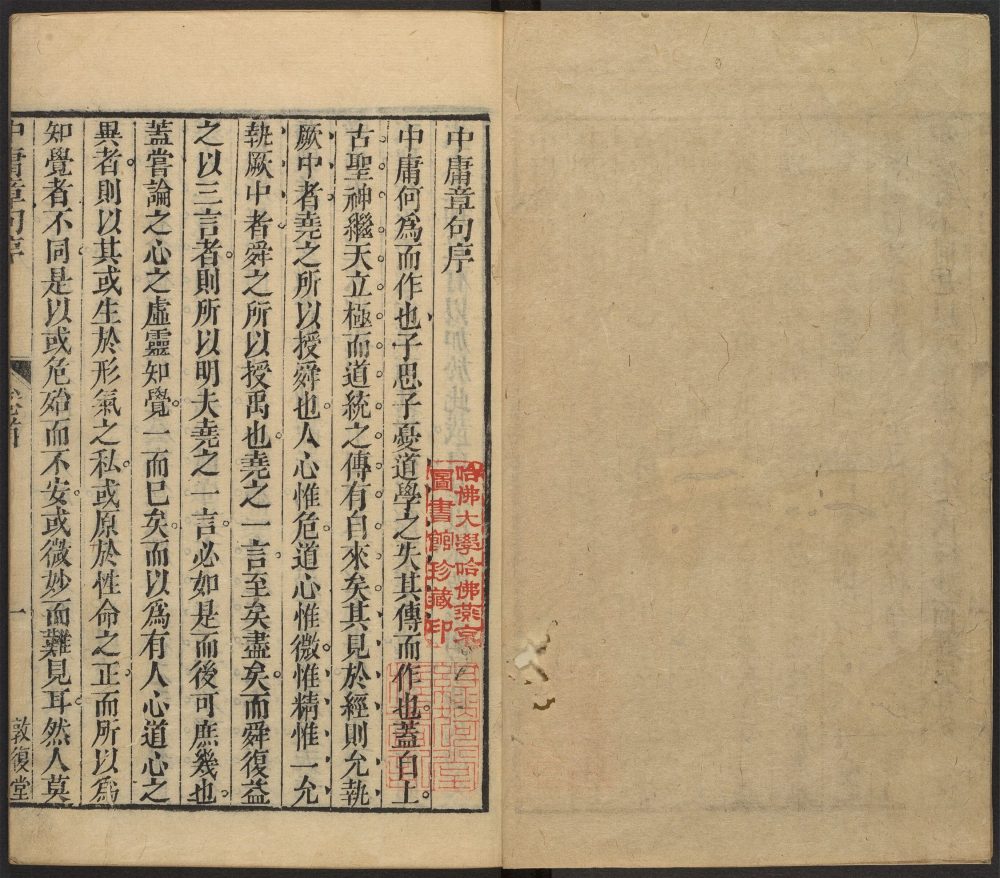 中庸章句序
中庸何為而作也子思子憂道學之失其傳而作也蓋自上
古聖神繼天立極而道統之傳有自來矣其見於經則允執
厥中者堯之所以授舜也人心惟危道心惟微惟精惟一允
執厥中者舜之所以授禹也堯之一言至矣盡矣而舜復益
之以三言者則所以明夫堯之一言必如是而後可庶幾也
蓋嘗論之心之虛靈知覺一而已矣而以爲有人心道心之
異者則以其或生於形氣之私或原於性命之正而所以爲
知覺者不同是以或危殆而不安或微妙而難見耳然人莫
中庸章句序
一
敦復堂
哈佛大學哈佛燕京
圖書館珍藏印